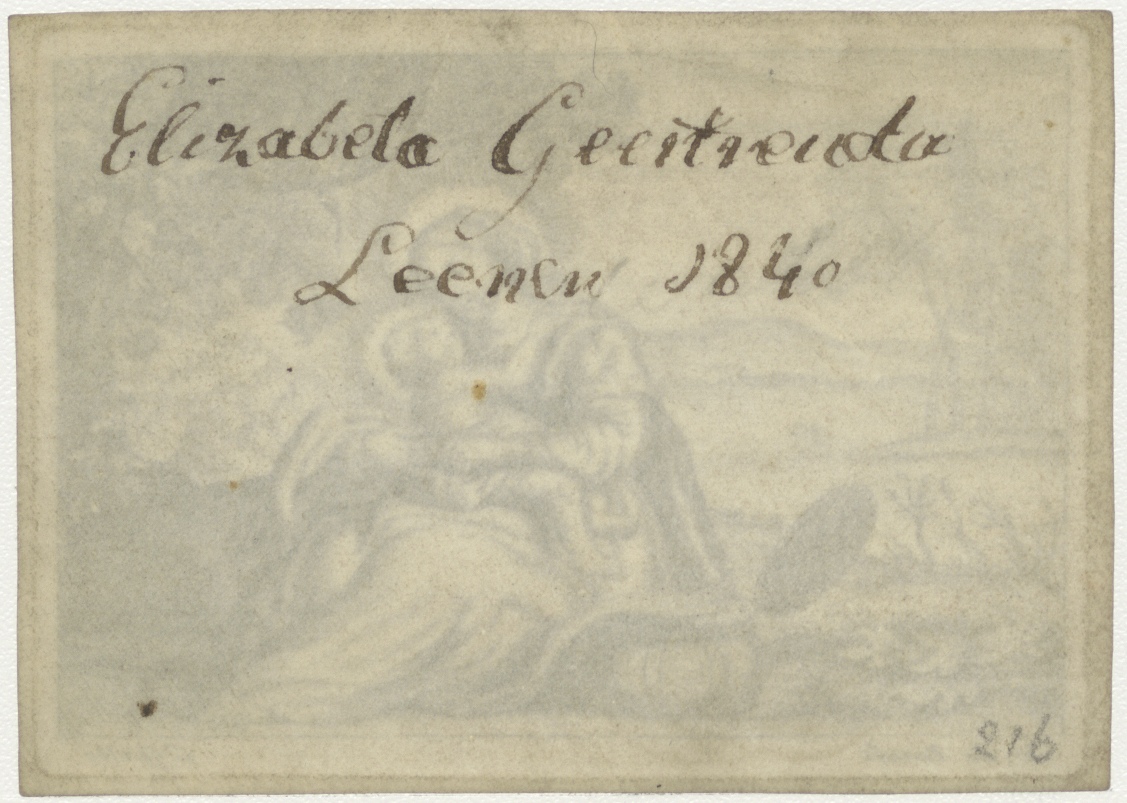 Elizabeta Geertreuda
Leenen 1840
216